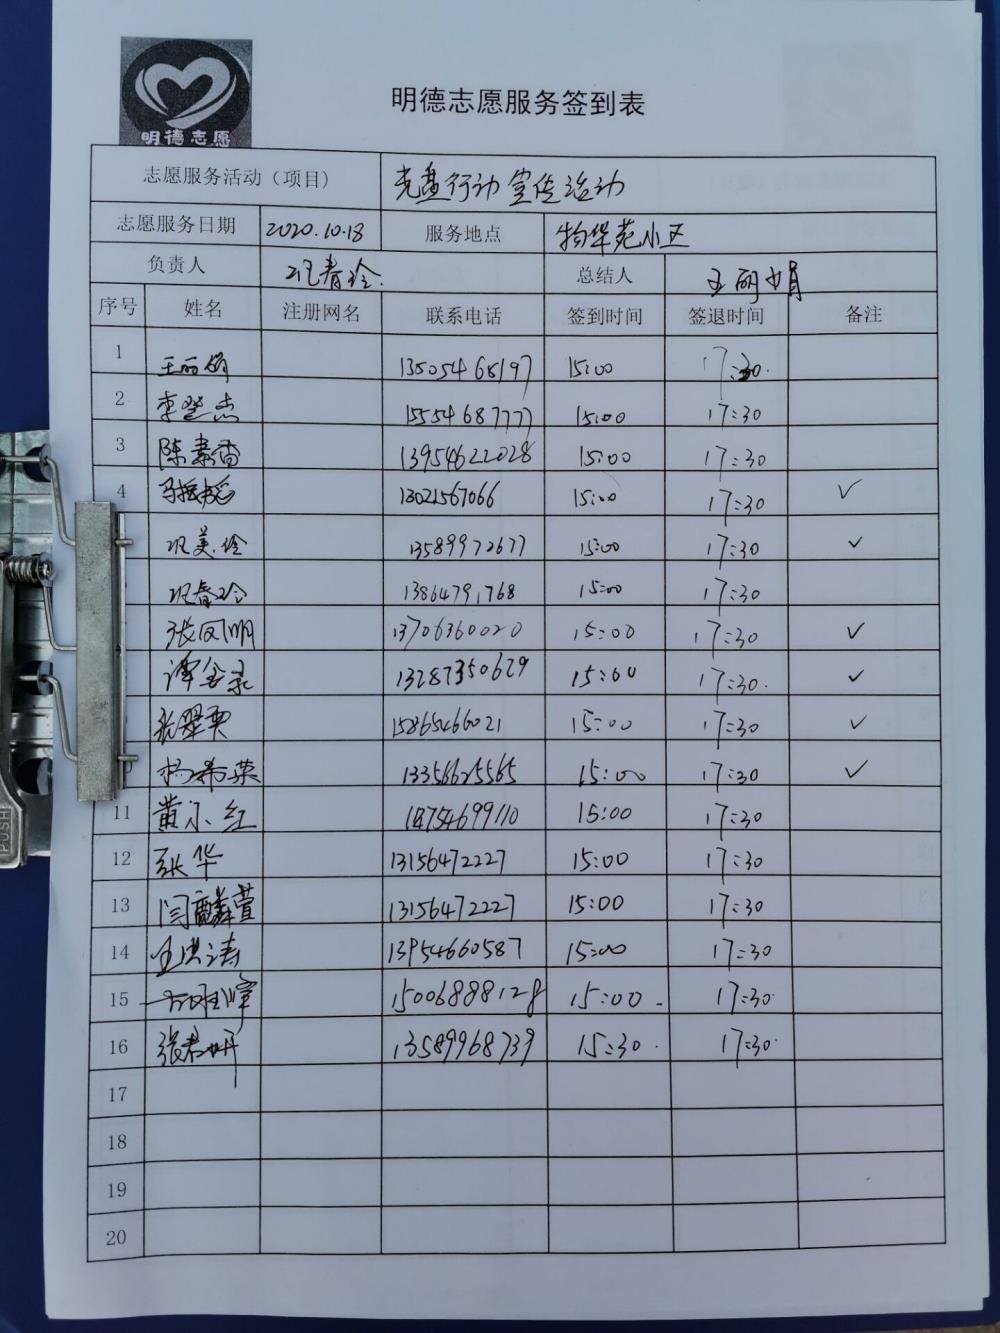 明德志愿
明德志愿服务签到表
志愿服务活动（项目） 光盘行动宣传活动
志愿服务日期 2020.10.18 服务地点 物华苑小区
负责人 巩春玲 总结人 王丽娟
序号 姓名 注册网名 联系电话 签到时间 签退时间 备注
1 王丽娟 13505468197 15:00 17:30
2 李登杰 15554687777 15:00 17:30
3 陈素香 13954622028 15:00 17:30
4 13021567066 15:00 17:30 ✓
巩美玲 13589972677 15:00 17:30 ✓
巩春玲 13864791768 15:00 17:30
张凤明 13706360020 15:00 17:30 ✓
谭金录 13287350629 15:00 17:30 ✓
张翠 15865466021 15:00 17:30 ✓
杨希英 13356625565 15:00 17:30 ✓
11 黄小红 754699110 15:00 17:30
12 张华 13156472227 15:00 17:30
13 闫麟萱 13156472227 15:00 17:30
14 王洪涛 13954660587 15:00 17:30
15 15006888128 15:00 17:30
16 张春妍 13589968739 15:30 17:30
17
18
19
20
PUSH